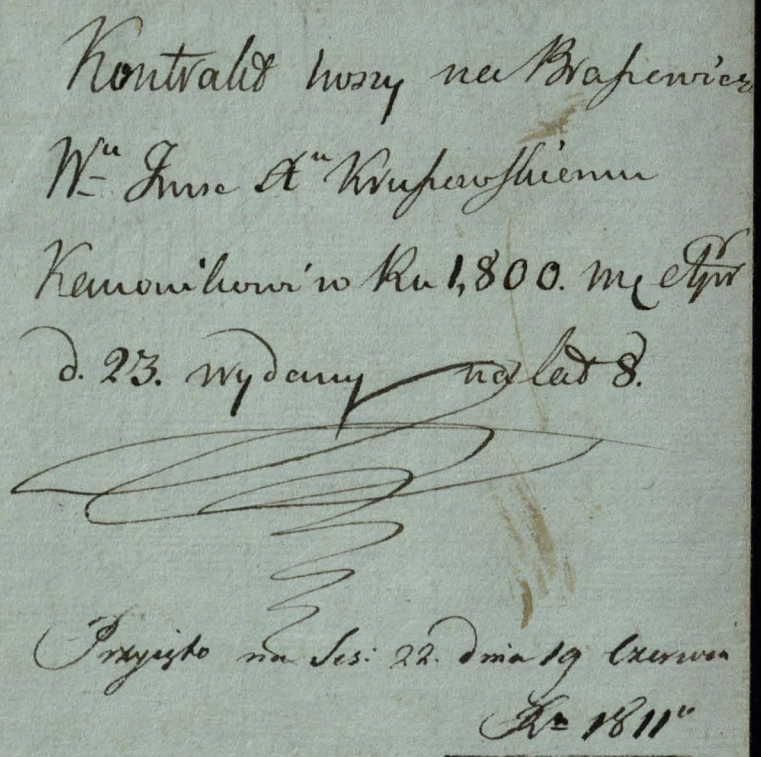 Kontrakt nowy na Brasiewicz
W.u Jmsc X.u Krusiewskiemu
Kanonikowi w Ru 1,800. Mca Apr
d. 23. wydany na lat 8.
Przyięto na Ses: 22. dnia 19 Czerwca
Ru 1811.o